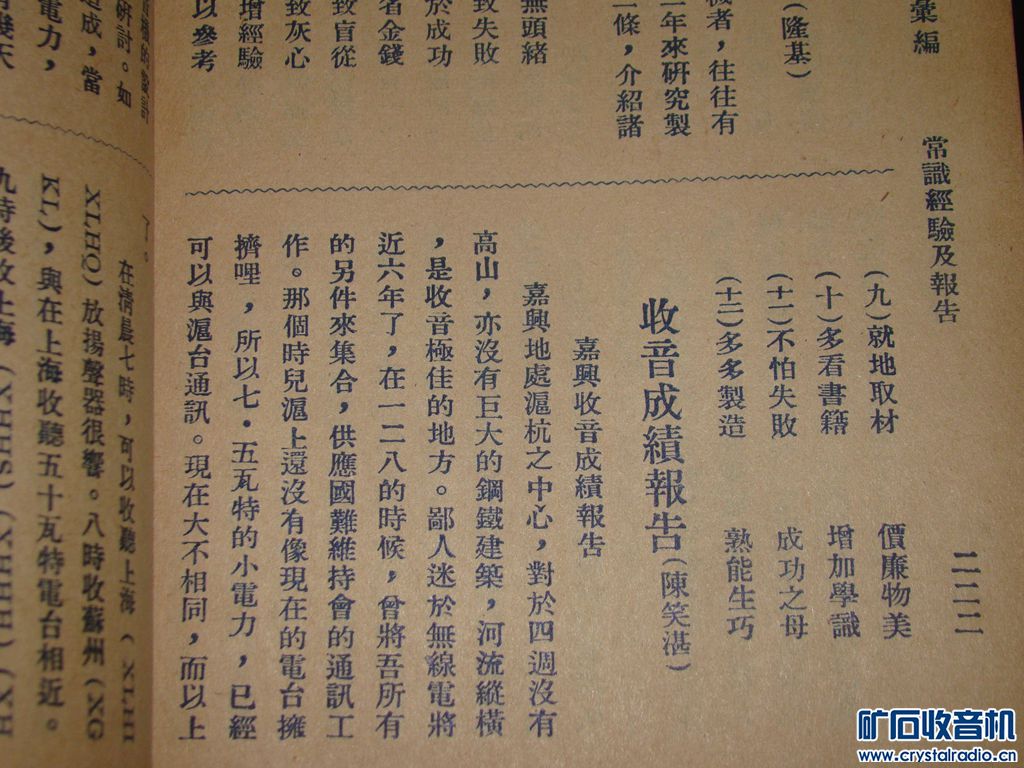 彙編
常識經驗及報告
二二二
(隆基)
者，往往有
年來研究製
條，介紹諸
無頭緒
致失敗
於成功
省金錢
致盲從
致灰心
增經驗
以參考
(九)就地取材 價廉物美
(十)多看書籍 增加學識
(十一)不怕失敗 成功之母
(十二)多多製造 熟能生巧
收音成績報告(陳笑湛)
嘉興收音成績報告
嘉興地處滬杭之中心，對於四週沒有
高山，亦沒有巨大的鋼鐵建築，河流縱橫
，是收音極佳的地方。鄙人迷於無線電將
近六年了，在一二八的時候，曾將吾所有
的另件來集合，供應國難維持會的通訊工
作。那個時兒滬上還沒有像現在的電台擁
擠哩，所以七·五瓦特的小電力，已經
可以與滬台通訊。現在大不相同，而以上
研討。如
造成，當
電力，
了。
在清晨七時，可以收聽上海(XLHI
XLHQ)放揚聲器很響。八時收蘇州(XNG
KL)，與在上海收聽五十瓦特電台相近。
九時後收上海(SHHX)(HHHX)(
矿石收音机
www.crystalradio.cn